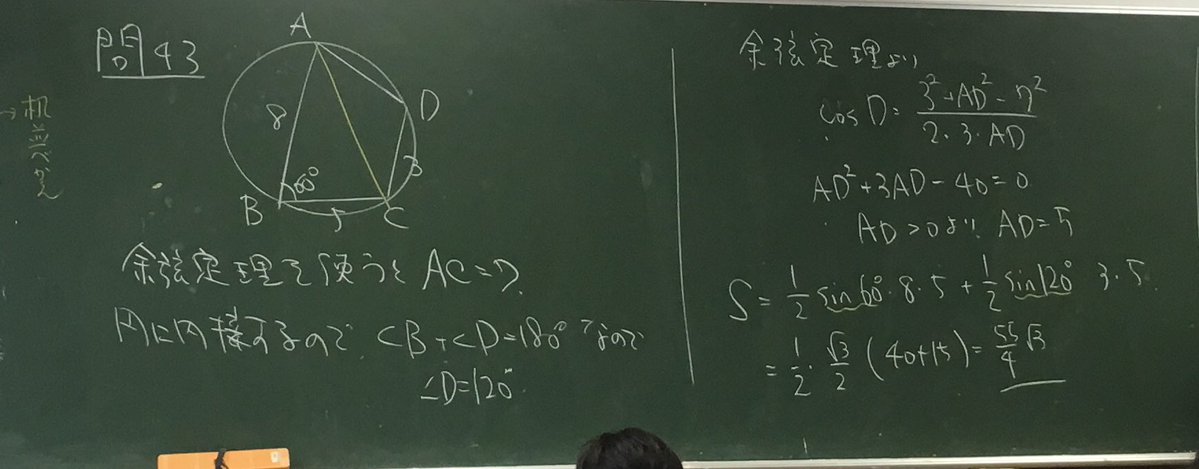 問43
A
8
D
60°
3
B
5
C
余弦定理を使うと AC=7.
円に内接するので、∠B+∠D=180°なので
∠D=120°
余弦定理より
cos D = (3²+AD²-7²)/(2・3・AD)
AD²+3AD-40=0
AD>0より AD=5
S = 1/2 sin60°・8・5 + 1/2 sin120° 3・5
= 1/2・√3/2 (40+15) = 55/4 √3